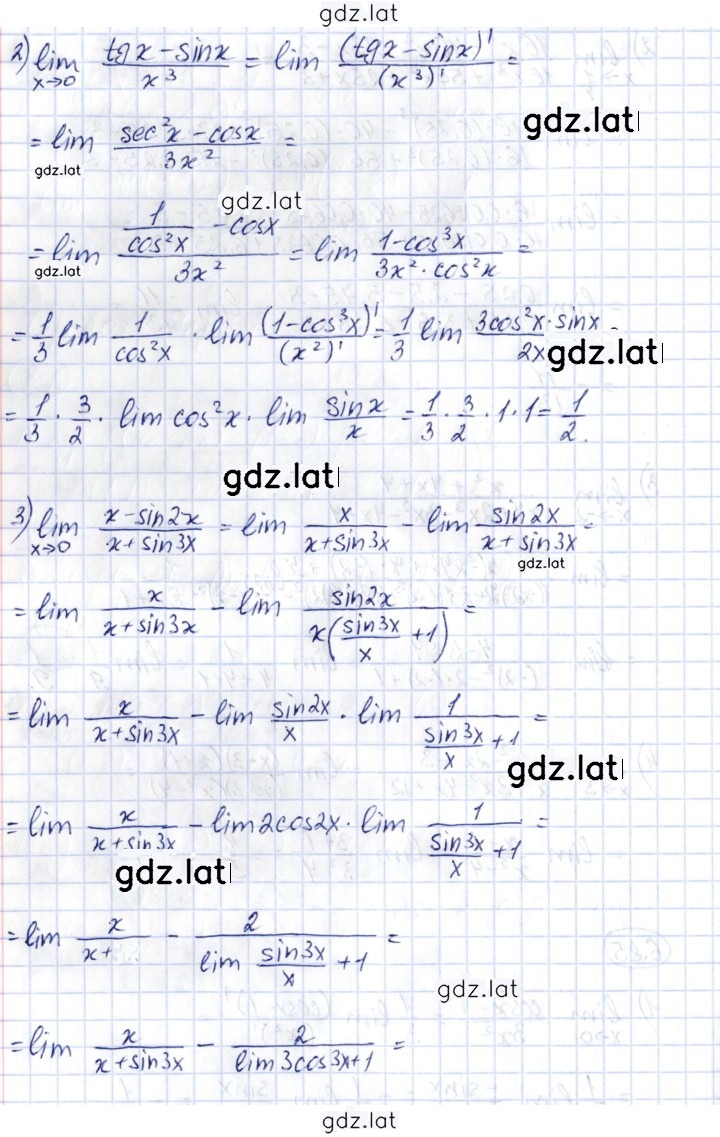 gdz.lat
2) lim x→0 (tgx - sinx)/x³ = lim (tgx - sinx)'/(x³)' =
gdz.lat
= lim (sec²x - cosx)/3x² =
gdz.lat
gdz.lat
= lim (1/cos²x - cosx)/3x² = lim (1-cos³x)/(3x²·cos²x) =
gdz.lat
= 1/3 lim 1/cos²x · lim (1-cos³x)'/(x²)' = 1/3 lim 3cos²x·sinx/2x =
gdz.lat
= 1/3 · 3/2 · lim cos²x · lim sinx/x = 1/3 · 3/2 · 1 · 1 = 1/2.
gdz.lat
3) lim x→0 (x - sin2x)/(x + sin3x) = lim x/(x + sin3x) - lim sin2x/(x + sin3x) =
gdz.lat
= lim x/(x + sin3x) - lim sin2x/(x(sin3x/x + 1)) =
= lim x/(x + sin3x) - lim sin2x/x · lim 1/(sin3x/x + 1) =
gdz.lat
= lim x/(x + sin3x) - lim 2cos2x · lim 1/(sin3x/x + 1) =
gdz.lat
= lim x/(x+ - 2/(lim sin3x/x + 1) =
gdz.lat
= lim x/(x + sin3x) - 2/(lim 3cos3x + 1) =
gdz.lat